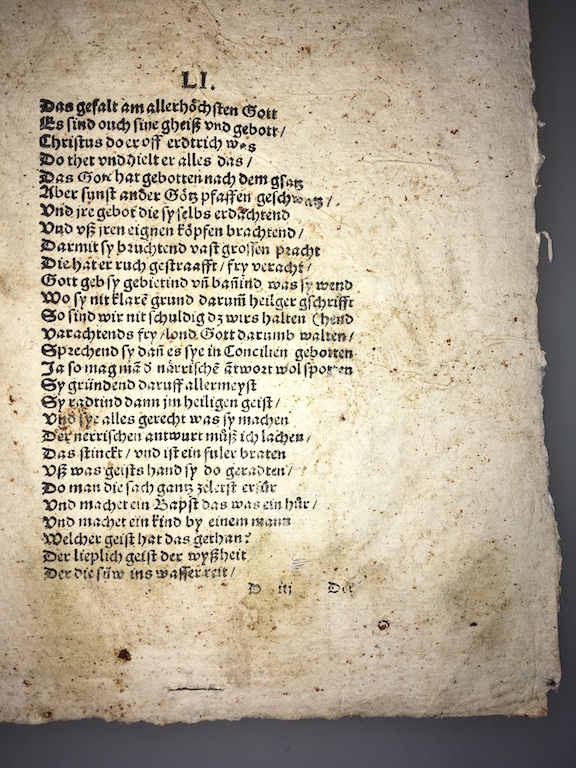 LI.
Das gefalt am allerhöchsten Gott
Es sind ouch sine gheiß vnd gebott /
Christus do er vff erdtrich was
Do thet vnd hielt er alles das /
Das Gott hat gebotten nach dem gsatz
Aber sunst ander Götz pfaffen geschwatz / .
Vnd jre gebot die sy selbs erdachtend
Vnd vß jren eignen köpfen brachtend /
Darmit sy bruchtend vast grossen pracht
Die hat er ruch gestraafft / fry veracht /
Gott geb sy gebietind vñ bañind was sy wend
Wo sy nit klarẽ grund darum̃ heilger gschrifft
So sind wir nit schuldig dz wirs halten (hend
Varachtends fry / lond Gott darumb walten /
Sprechend sy dañ es sye in Concilien gebotten
Ja so mag mã d närrischẽ ãtwort wol spotten
Sy gründend daruff allermeyst
Sy radtind dann jm heiligen geist /
Vnd sye alles gerecht was sy machen
Der nerrischen antwurt můß ich lachen /
Das stinckt / vnd ist ein fuler braten
Vß was geists hand sy do geradten /
Do man die sach gantz zeletst erfür
Vnd machet ein Bapst das was ein hůr /
Vnd machet ein kind by einem mann
Welcher geist hat das gethan?
Der lieplich geist der wyßheit
Der die süw ins wasser reit /
D iij Der